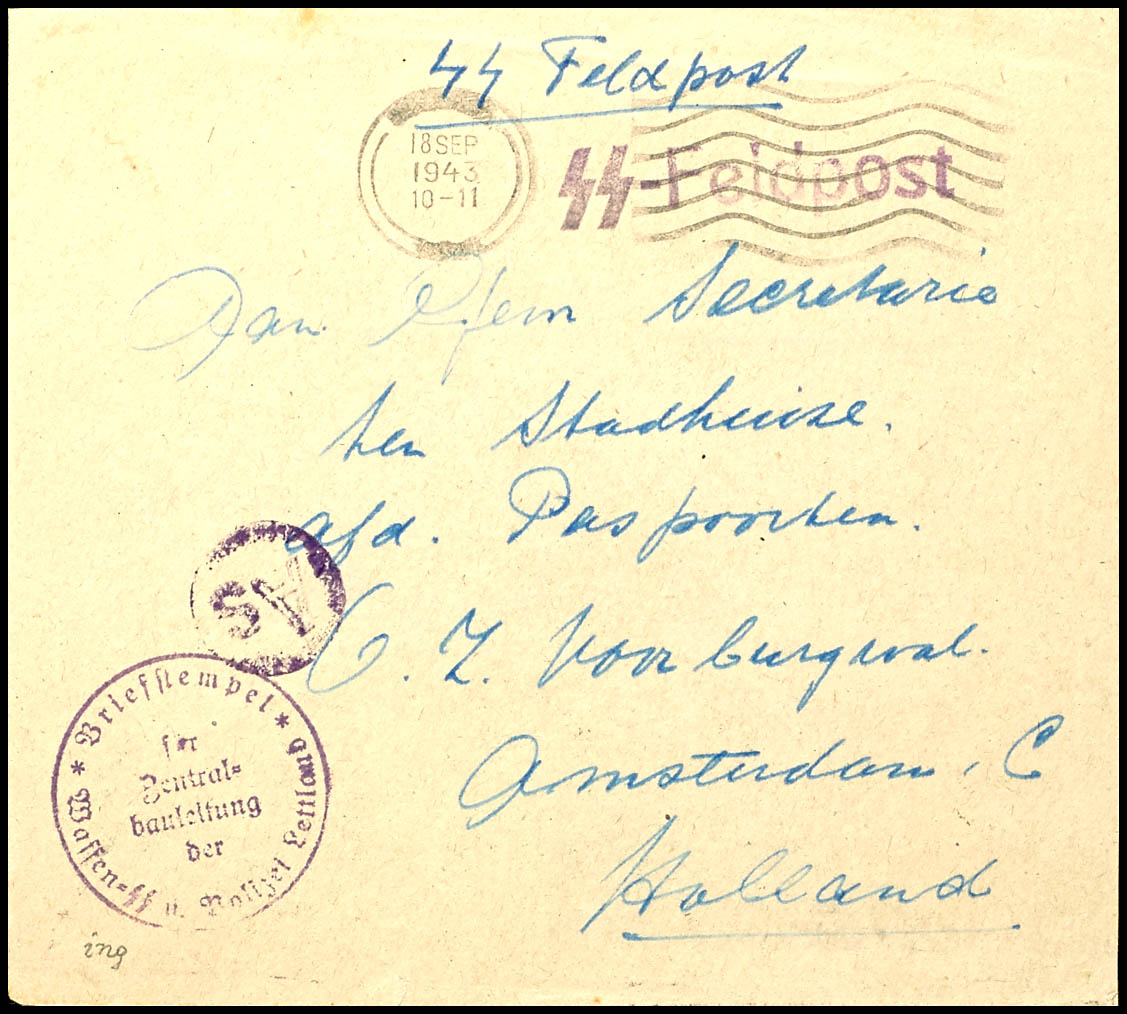 SS Feldpost
18 SEP
1943
10-11
SS-Feldpost
Aan Secretarie
ten Stadhuize.
afd. Paspoorten.
O. Z. Voorburgwal.
Amsterdam. C
Holland
* Briefstempel *
für
Zentral=
bauleitung
der
Waffen=SS u. Polizei Lettland
ing